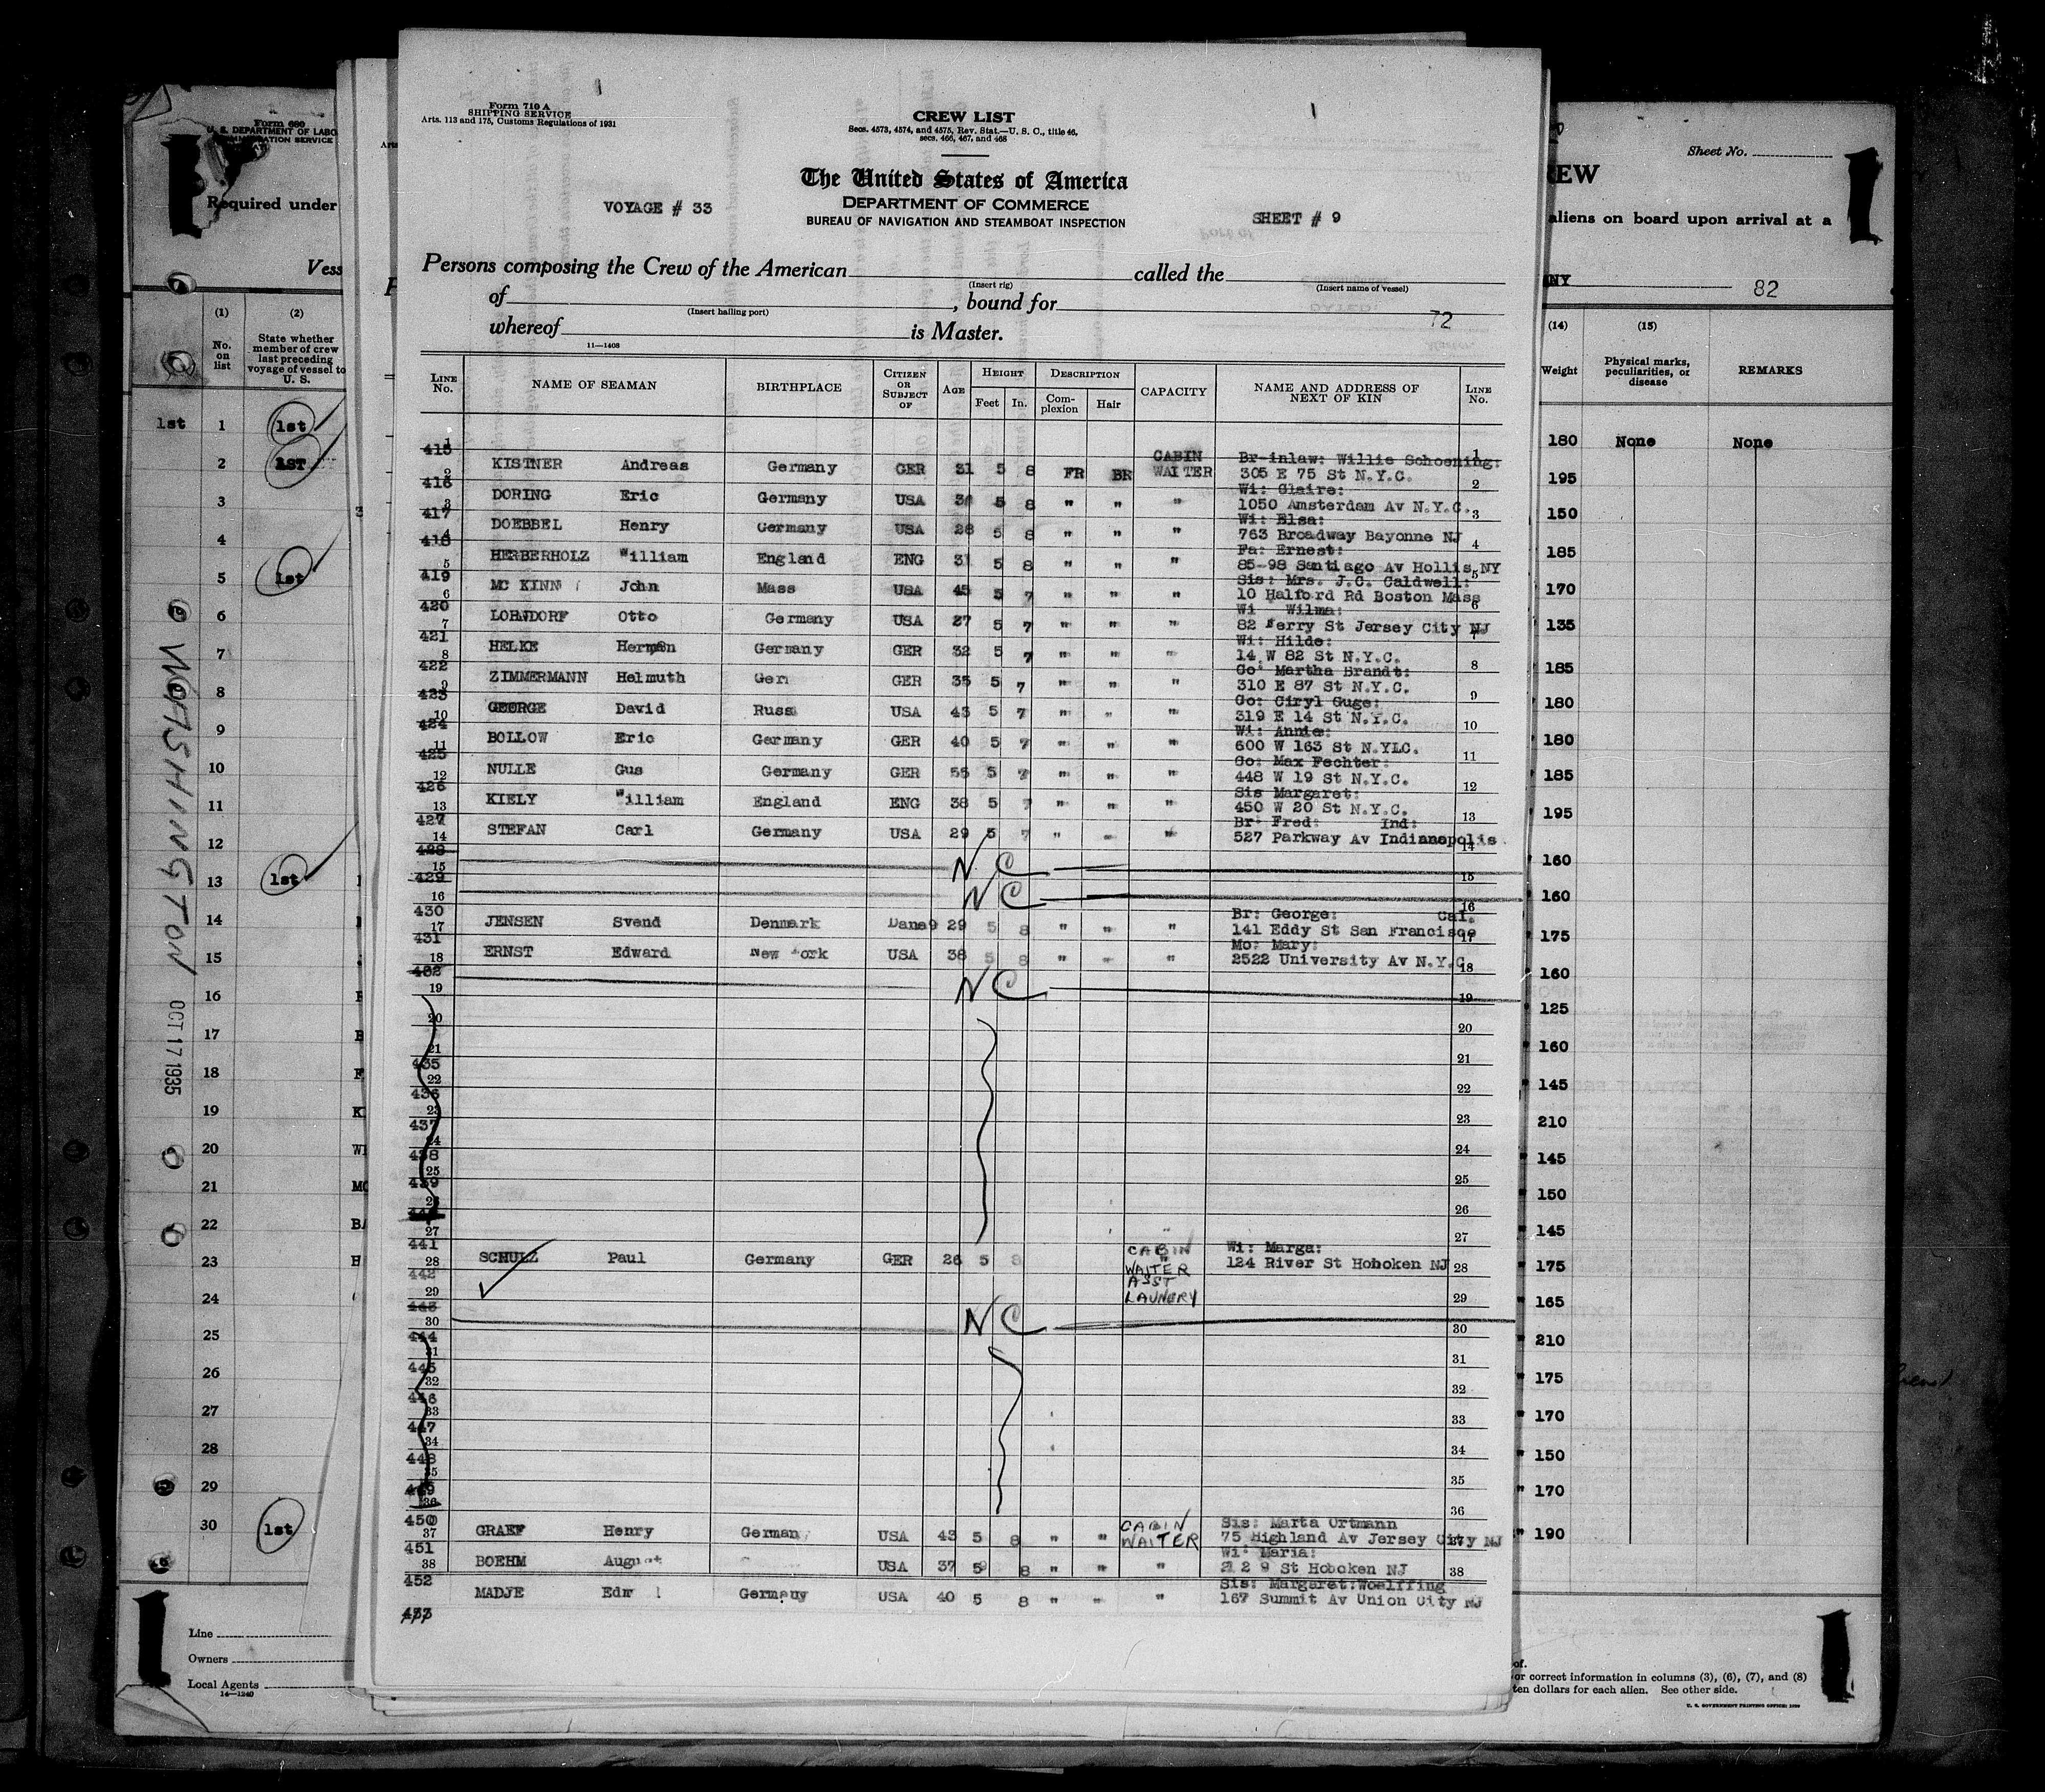 Form 710 A
SHIPPING SERVICE
Arts. 113 and 175, Customs Regulations of 1931
CREW LIST
Secs. 4573, 4574, and 4575, Rev. Stat.—U. S. C., title 46,
secs. 466, 467, and 468
The United States of America
DEPARTMENT OF COMMERCE
BUREAU OF NAVIGATION AND STEAMBOAT INSPECTION
VOYAGE # 33
SHEET # 9
Persons composing the Crew of the American called the
(Insert rig) (Insert name of vessel)
of , bound for
(Insert hailing port)
72
whereof is Master.
11—1408
LINE No. NAME OF SEAMAN BIRTHPLACE CITIZEN OR SUBJECT OF AGE HEIGHT Feet In. DESCRIPTION Complexion Hair CAPACITY NAME AND ADDRESS OF NEXT OF KIN LINE No.
415 KISTNER Andreas Germany GER 31 5 8 FR BR CABIN WAITER Br-inlaw: Willie Schoening:
305 E 75 St N.Y.C.
416 DORING Eric Germany USA 5 8 " " " Wi: Claire:
1050 Amsterdam Av N.Y.C.
417 DOEBBEL Henry Germany USA 28 5 8 " " " Wi: Elsa:
763 Broadway Bayonne NJ
418 HERBERHOLZ William England ENG 31 5 8 " " " Fa: Ernest:
85-98 Santiago Av Hollis NY
419 MC KINN John Mass USA 45 5 7 " " " Sis: Mrs. J.C. Caldwell:
10 Halford Rd Boston Mass
420 LOHNDORF Otto Germany USA 27 5 7 " " " Wi Wilma:
82 Ferry St Jersey City NJ
421 HELKE Herman Germany GER 32 5 7 " " " Wi: Hilde:
14 W 82 St N.Y.C.
422 ZIMMERMANN Helmuth Ger GER 35 5 7 " " " Go: Martha Brandt:
310 E 87 St N.Y.C.
423 GEORGE David Russ USA 43 5 7 " " " Go: Ciryl Guge:
319 E 14 St N.Y.C.
424 BOLLOW Eric Germany GER 40 5 7 " " " Wi: Annie:
600 W 163 St N.YLC.
425 NULLE Gus Germany GER 55 5 7 " " " Go: Max Fechter:
448 W 19 St N.Y.C.
426 KIELY William England ENG 38 5 7 " " " Sis Margaret:
450 W 20 St N.Y.C.
427 STEFAN Carl Germany USA 29 5 7 " " " Br Fred: Ind:
527 Parkway Av Indianapolis
428 NC
429 NC
430 JENSEN Svend Denmark Dane 29 5 8 " " " Br: George: Cal.
141 Eddy St San Francisco
431 ERNST Edward New York USA 38 5 8 " " " Mo: Mary:
2522 University Av N.Y.C
432 NC
435
436
437
438
439
441 SCHULZ Paul Germany GER 26 5 8 CABIN WAITER Wi: Marga:
124 River St Hoboken NJ
442 ASST LAUNDRY
443 NC
444
445
446
447
448
449
450 GRAEF Henry German USA 43 5 8 " " CABIN WAITER Sis: Marta Ortmann
75 Highland Av Jersey City NJ
451 BOEHM August USA 37 5 8 " " " Wi: Maria:
212 9 St Hoboken NJ
452 MADJE Germany USA 40 5 8 " " " Sis: Margaret:Woelffing
167 Summit Av Union City NJ
Form 680
U. S. DEPARTMENT OF LABO
Required under
Vess
(1) (2)
No. on list
State whether member of crew last preceding voyage of vessel to U. S.
1st 1 1st
2 1ST
3
4
5 1st
6
7
8
9
10
11
12
13 1st
14
15
16
17
18
19
20
21
22
23
24
25
26
27
28
29
30 1st
WASHINGTON OCT 17 1935
Line
Owners
Local Agents
14—1240
Sheet No.
EW
aliens on board upon arrival at a
NY 82
(14) (15)
Weight Physical marks, peculiarities, or disease REMARKS
180 None None
195
150
185
170
135
185
180
180
185
195
160
160
175
160
125
160
145
210
145
150
145
175
165
210
175
170
150
170
190
of.
or correct information in columns (3), (6), (7), and (8)
ten dollars for each alien. See other side.
U. S. GOVERNMENT PRINTING OFFICE